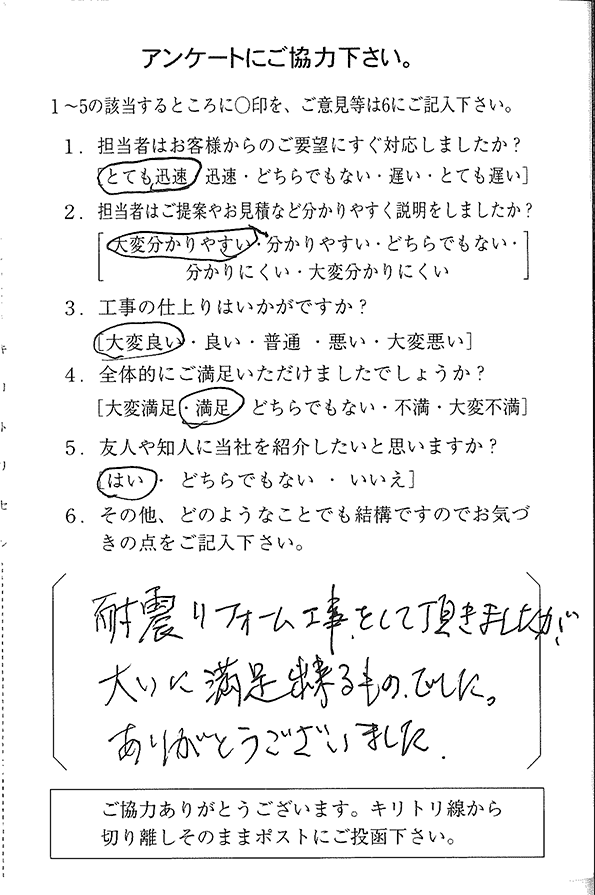 アンケートにご協力下さい。
1～5の該当するところに〇印を、ご意見等は6にご記入下さい。
1．担当者はお客様からのご要望にすぐ対応しましたか？
[とても迅速・迅速・どちらでもない・遅い・とても遅い]
2．担当者はご提案やお見積など分かりやすく説明をしましたか？
[大変分かりやすい・分かりやすい・どちらでもない・
分かりにくい・大変分かりにくい]
3．工事の仕上りはいかがですか？
[大変良い・良い・普通・悪い・大変悪い]
4．全体的にご満足いただけましたでしょうか？
[大変満足・満足・どちらでもない・不満・大変不満]
5．友人や知人に当社を紹介したいと思いますか？
[はい・どちらでもない・いいえ]
6．その他、どのようなことでも結構ですのでお気づ
きの点をご記入下さい。
耐震リフォーム工事をして頂きましたが、
大いに満足出来るものでした。
ありがとうございました.
ご協力ありがとうございます。キリトリ線から
切り離しそのままポストにご投函下さい。
キリトリセン